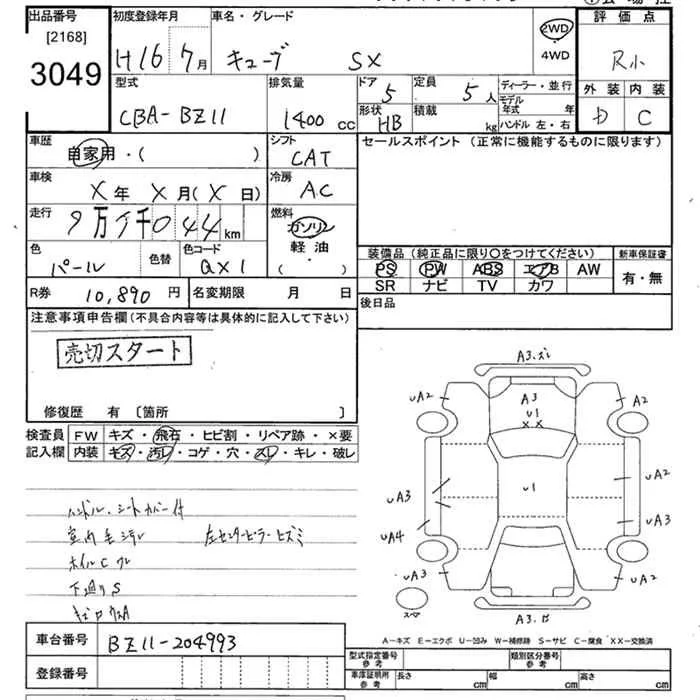 出品番号 初度登録年月 車名・グレード 2WD・4WD 評価点
[2168]
3049 H16 7月 キューブ SX R小
外装 内装
型式 排気量 ドア 定員 ディーラー・並行
CBA-BZ11 1400cc 5 5人 モデル年式 年 D C
形状 積載
HB kg ハンドル 左・右
車歴 自家用・( ) シフト CAT セールスポイント (正常に機能するものに限ります)
車検 X年 X月(X日) 冷房 AC
走行 9万 千044km 燃料 ガソリン
軽油・
( )
色 パール 色替 色コード QX1
装備品 (純正品に限り〇をつけてください) 新車保証書
PS PW ABS エアB AW 有・無
SR ナビ TV カワ
R券 10,890円 名変期限 月 日 後日品
注意事項申告欄(不具合内容等は具体的に記入して下さい)
売切スタート
修復歴 有 〔箇所 〕
検査員 FW キズ・飛石・ヒビ割・リペア跡・×要
記入欄 内装 キズ・汚レ・コゲ・穴・スレ・キレ・破レ
ハンドル、シートカバー付
室内毛汚レ 左センターピラーヒズミ
ホイルC
下廻りS
A3.ズレ
UA2 A3 A2
U1
XX
UA3 U1 UA2
UA4 UA3
UA3 UA2
スペア
A3.
A-キズ E-エクボ U-凹み W-補修跡 S-サビ C-腐食 XX-交換済
車台番号 BZ11-204993
登録番号
型式指定番号 参考 類別区分番号 参考
車庫証明用 参考 長さ cm 幅 cm 高さ cm